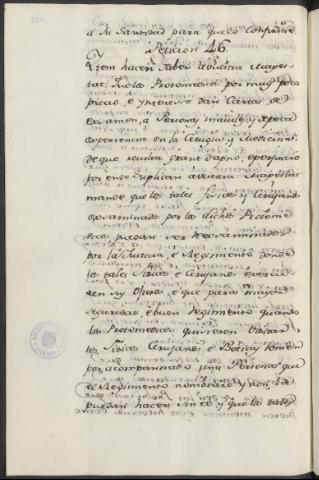 a Su Santidad para que lo confirme
Peticion 46.
Yten hacen saber a vuestra Magestad,
que los Protomedicos por muy poco
precio, e ynterese dan Cartas de
examen, a Personas inaviles, y de poca
experiencia en la Cirugia y Medicina,
de que resulta grant dapno, e perjuicio
por ende suplican a vuestra Magestad
mande que los tales Fisicos y Cirujanos
examinados por los dichos Protomedicos
puedan ser reexaminados
por la Justicia, e Regimiento donde
los tales Fisicos e Cirujanos exercieren
su Oficio, e que para mayor
seguridad, e buen Regimiento quando
los Protomedicos quisieren visitar
los Fisicos Cirujanos e Boticas tomen
por acompannado una Persona que
el Regimiento nombrare, y non los
puedan hacer sin el, y que los tales